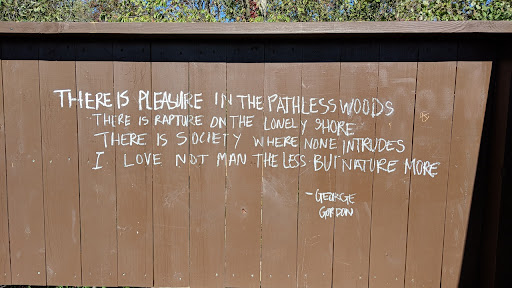 THERE IS PLEASURE IN THE PATHLESS WOODS
THERE IS RAPTURE ON THE LONELY SHORE
THERE IS SOCIETY WHERE NONE INTRUDES
I LOVE NOT MAN THE LESS BUT NATURE MORE
-GEORGE
GORDON